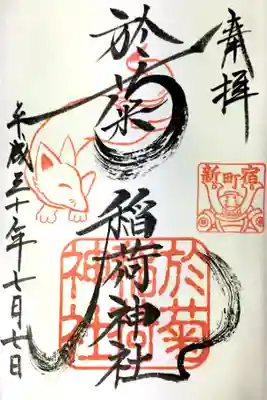 奉拝
新町宿
於菊
稲荷神社
於菊
神社
平成三十年七月七日